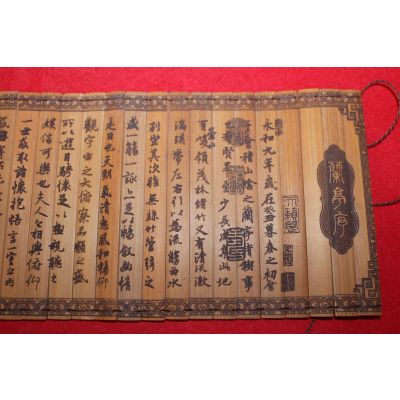 蘭亭序
永和九年歲在癸丑暮春之初會
于會稽山陰之蘭亭脩稧事
也羣賢畢至少長咸集此地
有峻領茂林脩竹又有清流激
湍暎帶左右引以為流觴曲水
列坐其次雖無絲竹管弦之
盛一觴一詠亦足以暢敘幽情
是日也天朗氣清惠風和暢仰
觀宇宙之大俯察品類之盛
所以遊目騁懷足以極視聽之
娛信可樂也夫人之相與俯仰
一世或取諸懷抱悟言一室之內